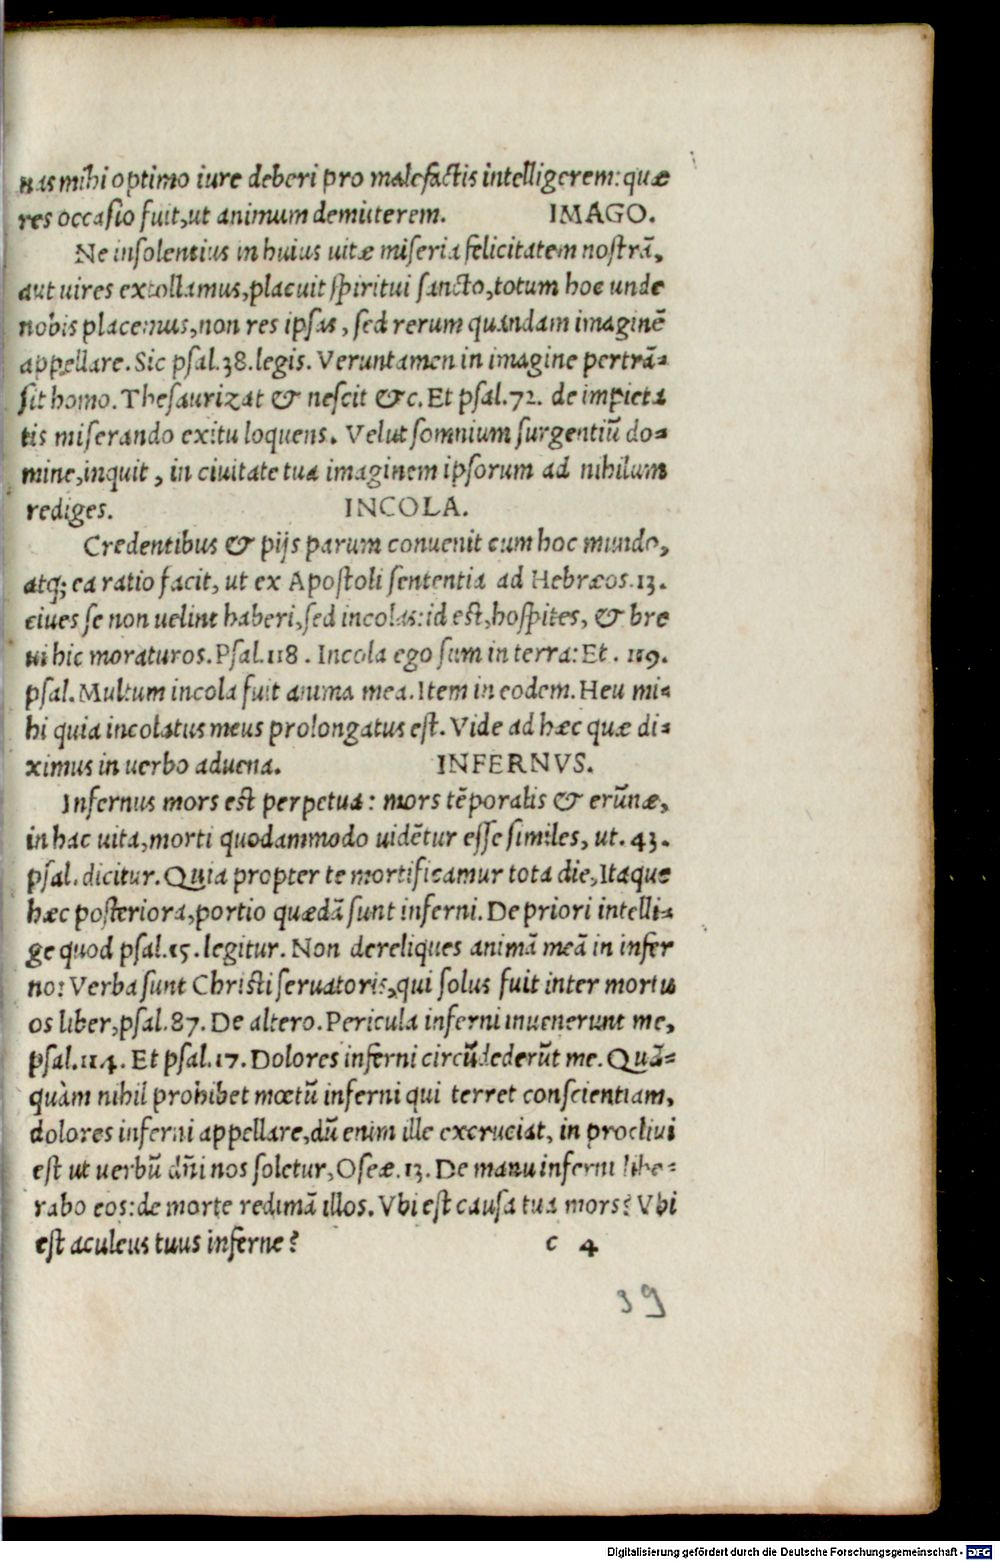 nas mihi optimo iure deberi pro malefactis intelligerem: quæ
res occasio fuit, ut animum demitterem. IMAGO.
Ne insolentius in huius uitæ miseria felicitatem nostrā,
aut uires extollamus, placuit spiritui sancto, totum hoc unde
nobis placemus, non res ipsas, sed rerum quandam imaginē
appellare. Sic psal.38. legis. Veruntamen in imagine pertrā-
sit homo. Thesaurizat & nescit &c. Et psal.72. de impieta
tis miserando exitu loquens. Velut somnium surgentiū do-
mine, inquit, in ciuitate tua imaginem ipsorum ad nihilum
rediges. INCOLA.
Credentibus & pijs parum conuenit cum hoc mundo,
atq; ea ratio facit, ut ex Apostoli sententia ad Hebræos.13.
ciues se non uelint haberi, sed incolas: id est, hospites, & bre
ui hic moraturos. Psal.118. Incola ego sum in terra: Et. 119.
psal. Multum incola fuit anima mea. Item in eodem. Heu mi-
hi quia incolatus meus prolongatus est. Vide ad hæc quæ di-
ximus in uerbo aduena. INFERNVS.
Infernus mors est perpetua: mors tēporalis & erūnæ,
in hac uita, morti quodammodo uidētur esse similes, ut. 43.
psal. dicitur. Quia propter te mortificamur tota die, Itaque
hæc posteriora, portio quædā sunt inferni. De priori intelli-
ge quod psal.15. legitur. Non dereliques animā meā in infer
no: Verba sunt Christi seruatoris, qui solus fuit inter mortu
os liber, psal.87. De altero. Pericula inferni inuenerunt me,
psal.114. Et psal.17. Dolores inferni circūdederūt me. Quā-
quàm nihil prohibet mœtū inferni qui terret conscientiam,
dolores inferni appellare, dū enim ille excruciat, in procliui
est ut uerbū dn̄i nos soletur, Oseæ.13. De manu inferni libe-
rabo eos: de morte redimā illos. Vbi est causa tua mors? Vbi
est aculeus tuus inferne? c 4
39
Digitalisierung gefördert durch die Deutsche Forschungsgemeinschaft - DFG